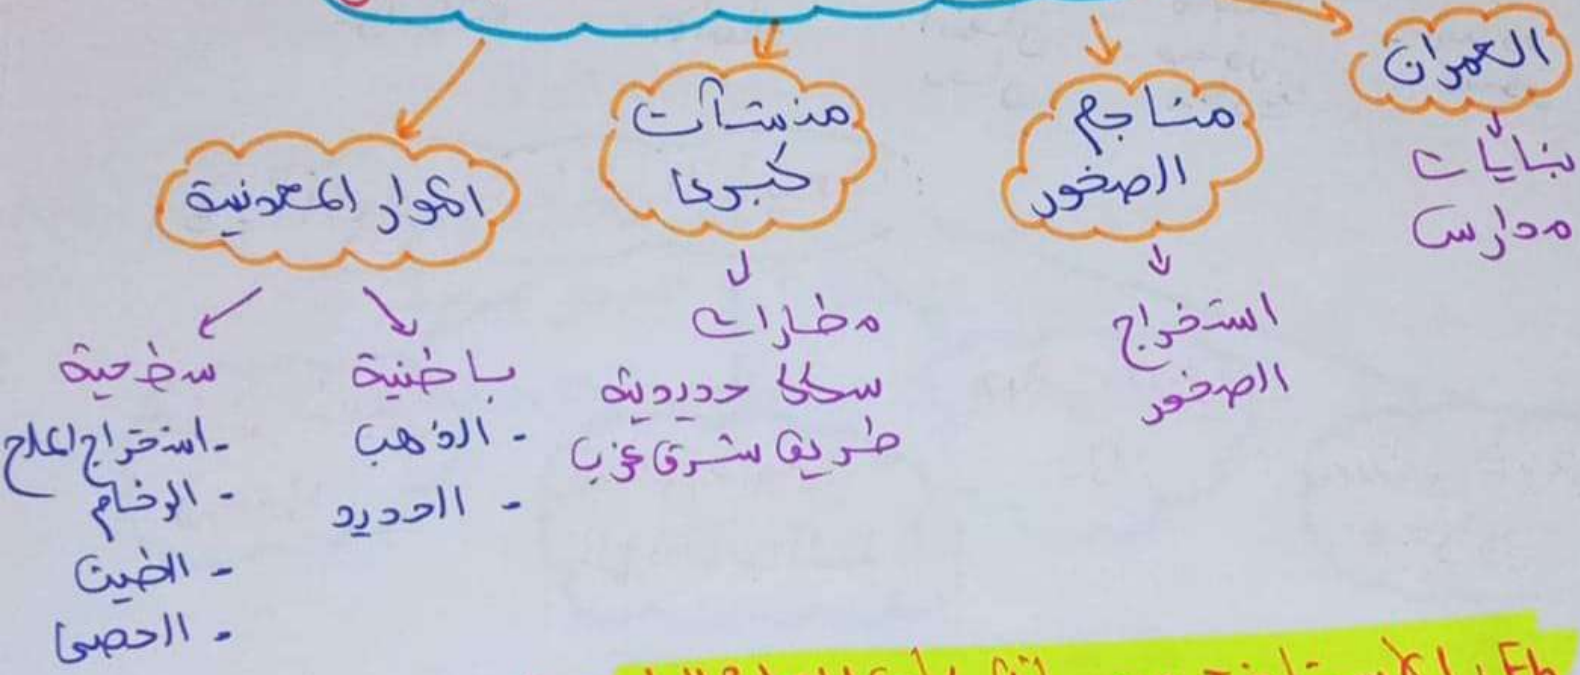 العمران
بنايات
مدارس
مناجم
الصخور
استخراج
الصخور
منشآت
كبرى
مطارات
سكك حديدية
طريق شرق غرب
الموارد المعدنية
باطنية
- الذهب
- الحديد
سطحية
- استخراج الملح
- الرخام
- الطين
- الحصى